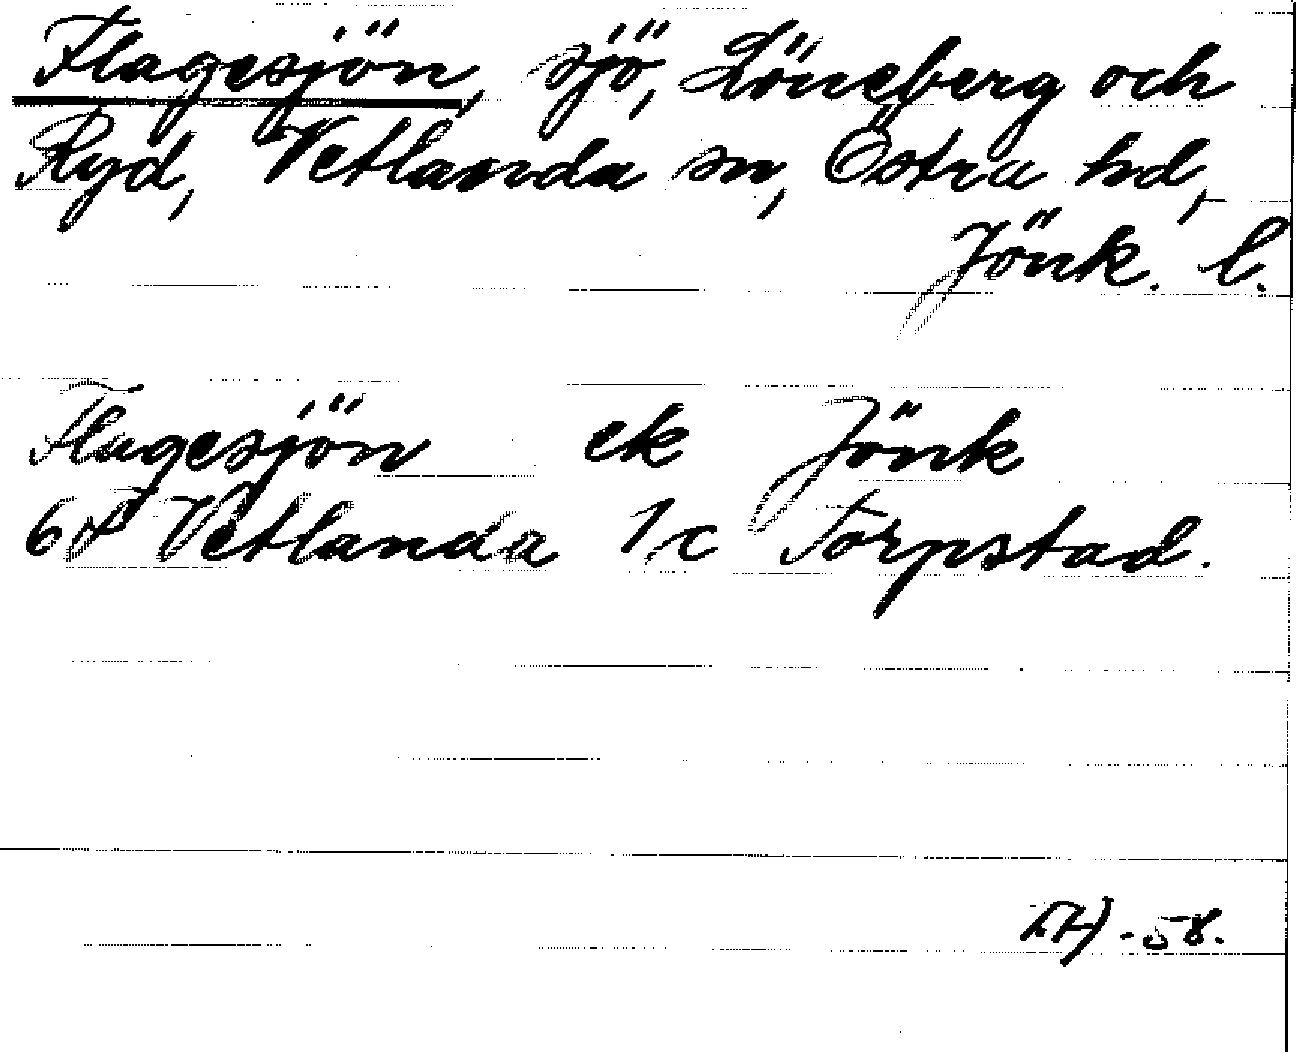 Flagesjön, sjö, Löneberg och
Ryd, Vetlanda sn, Östra hd,
Jönk. l.
Flagesjön ek Jönk
6F Vetlanda 1c Torpstad.
-58.